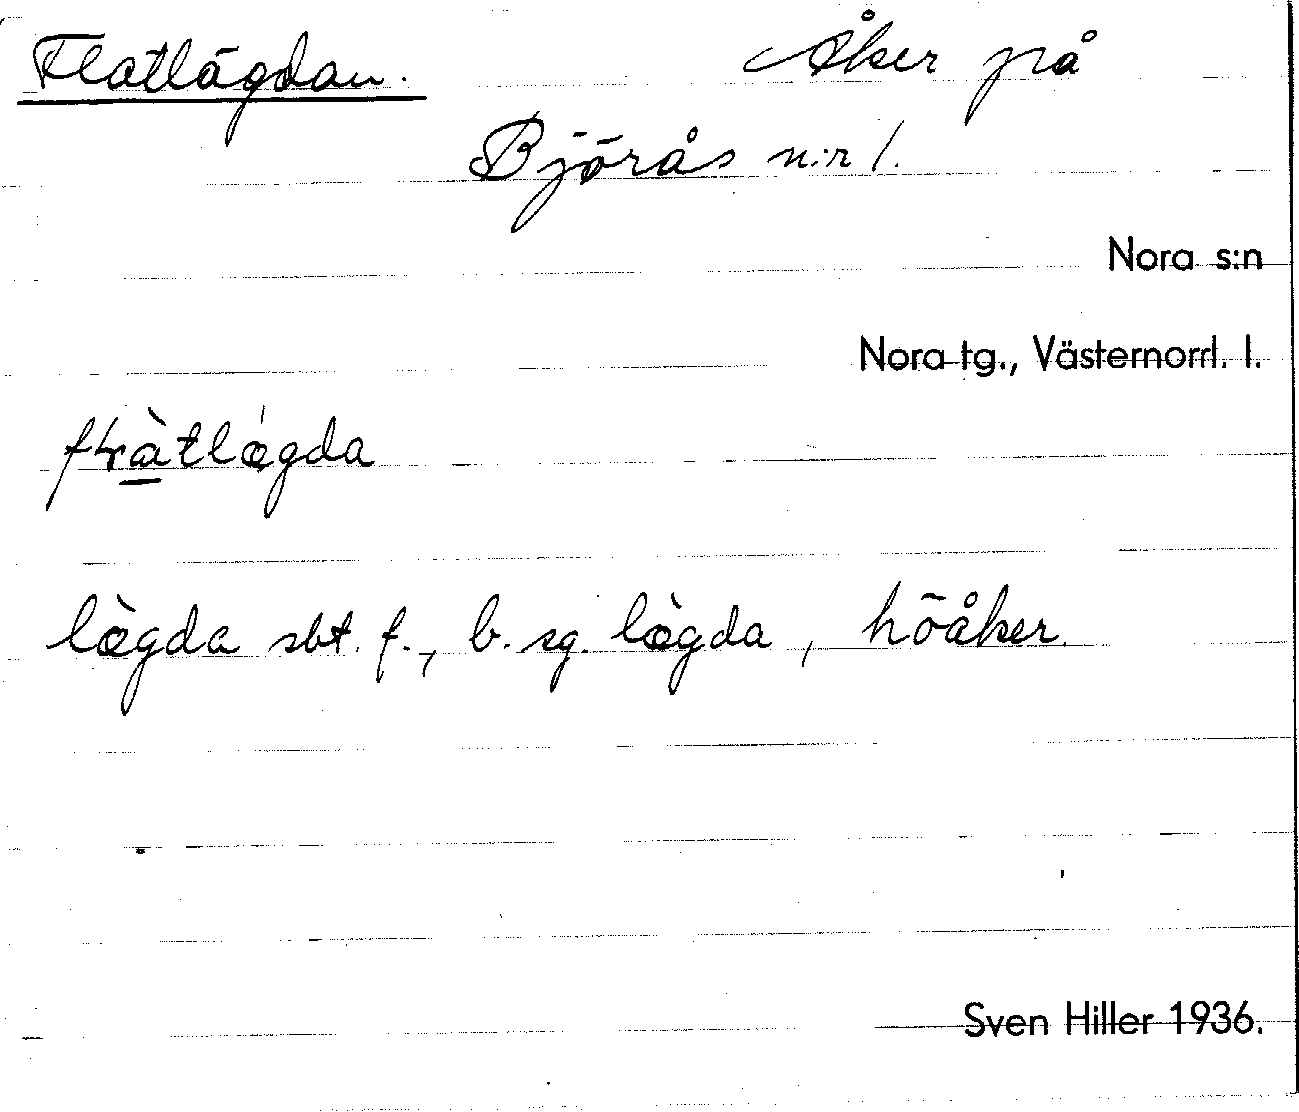 Flatlägdan. Åker på
Björås n:r 1.
Nora s:n
Nora tg., Västernorrl. l.
lǽgda sbt. f., b. sg. lǽgda, höåker.
Sven Hiller 1936.